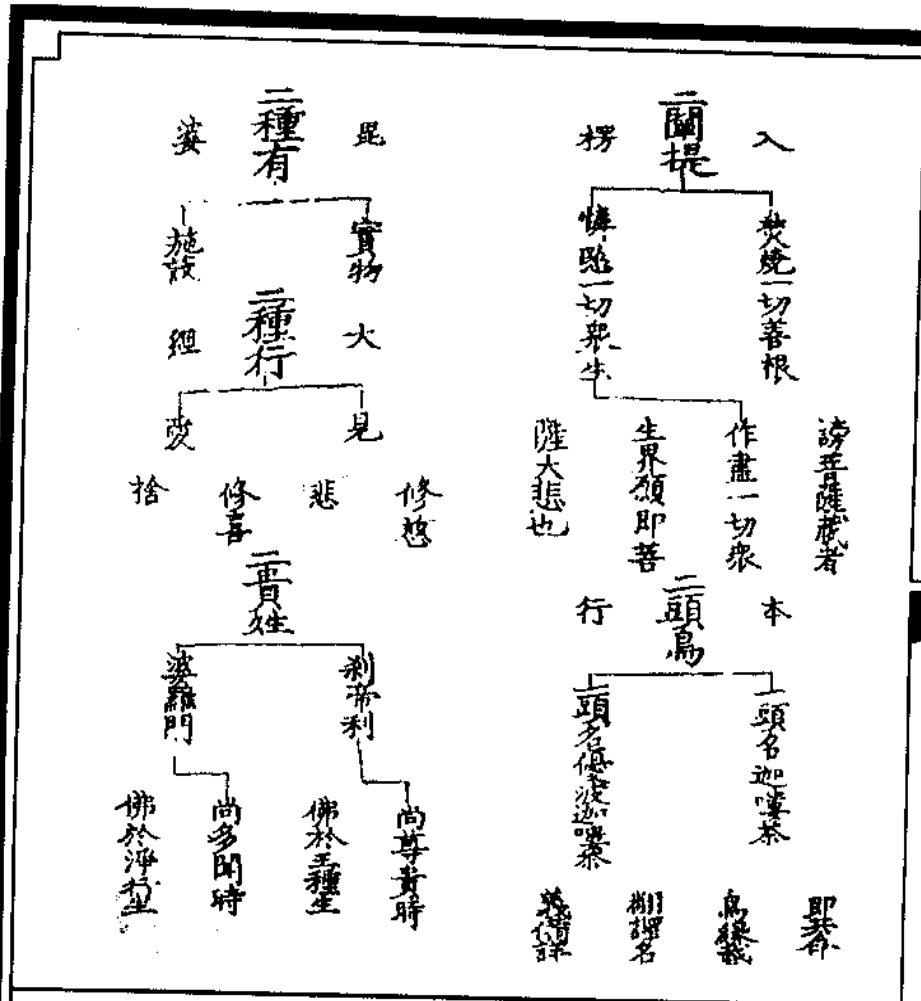 入
二闡提
楞
焚燒一切善根
謗菩薩藏者
憐愍一切衆生
作盡一切衆
生界願即菩
薩大悲也
本
二頭鳥
行
一頭名迦嘍茶
一頭名優波迦嘍茶
毘
二種有
婆
實物
施設
大
二種行
經
見
愛
修慈
悲
修喜
捨
二貴姓
刹帝利
尚尊貴時
佛於王種生
婆羅門
尚多聞時
佛於淨行生